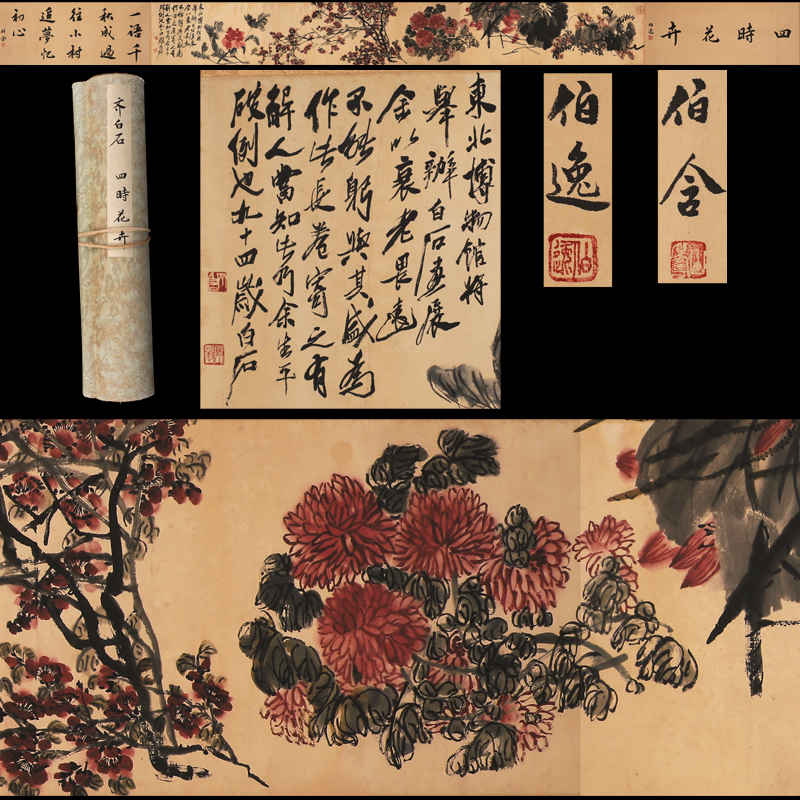 四時花卉
伯逸
一語千
秋成過
往小村
追夢憶
初心
齐白石 四時花卉
東北博物館將
舉辦白石畫展
余以衰老畏遠
不能躬與其盛為
作此長卷寄之有
解人當知此乃余生平
破例也九十四歲白石
伯逸
伯含